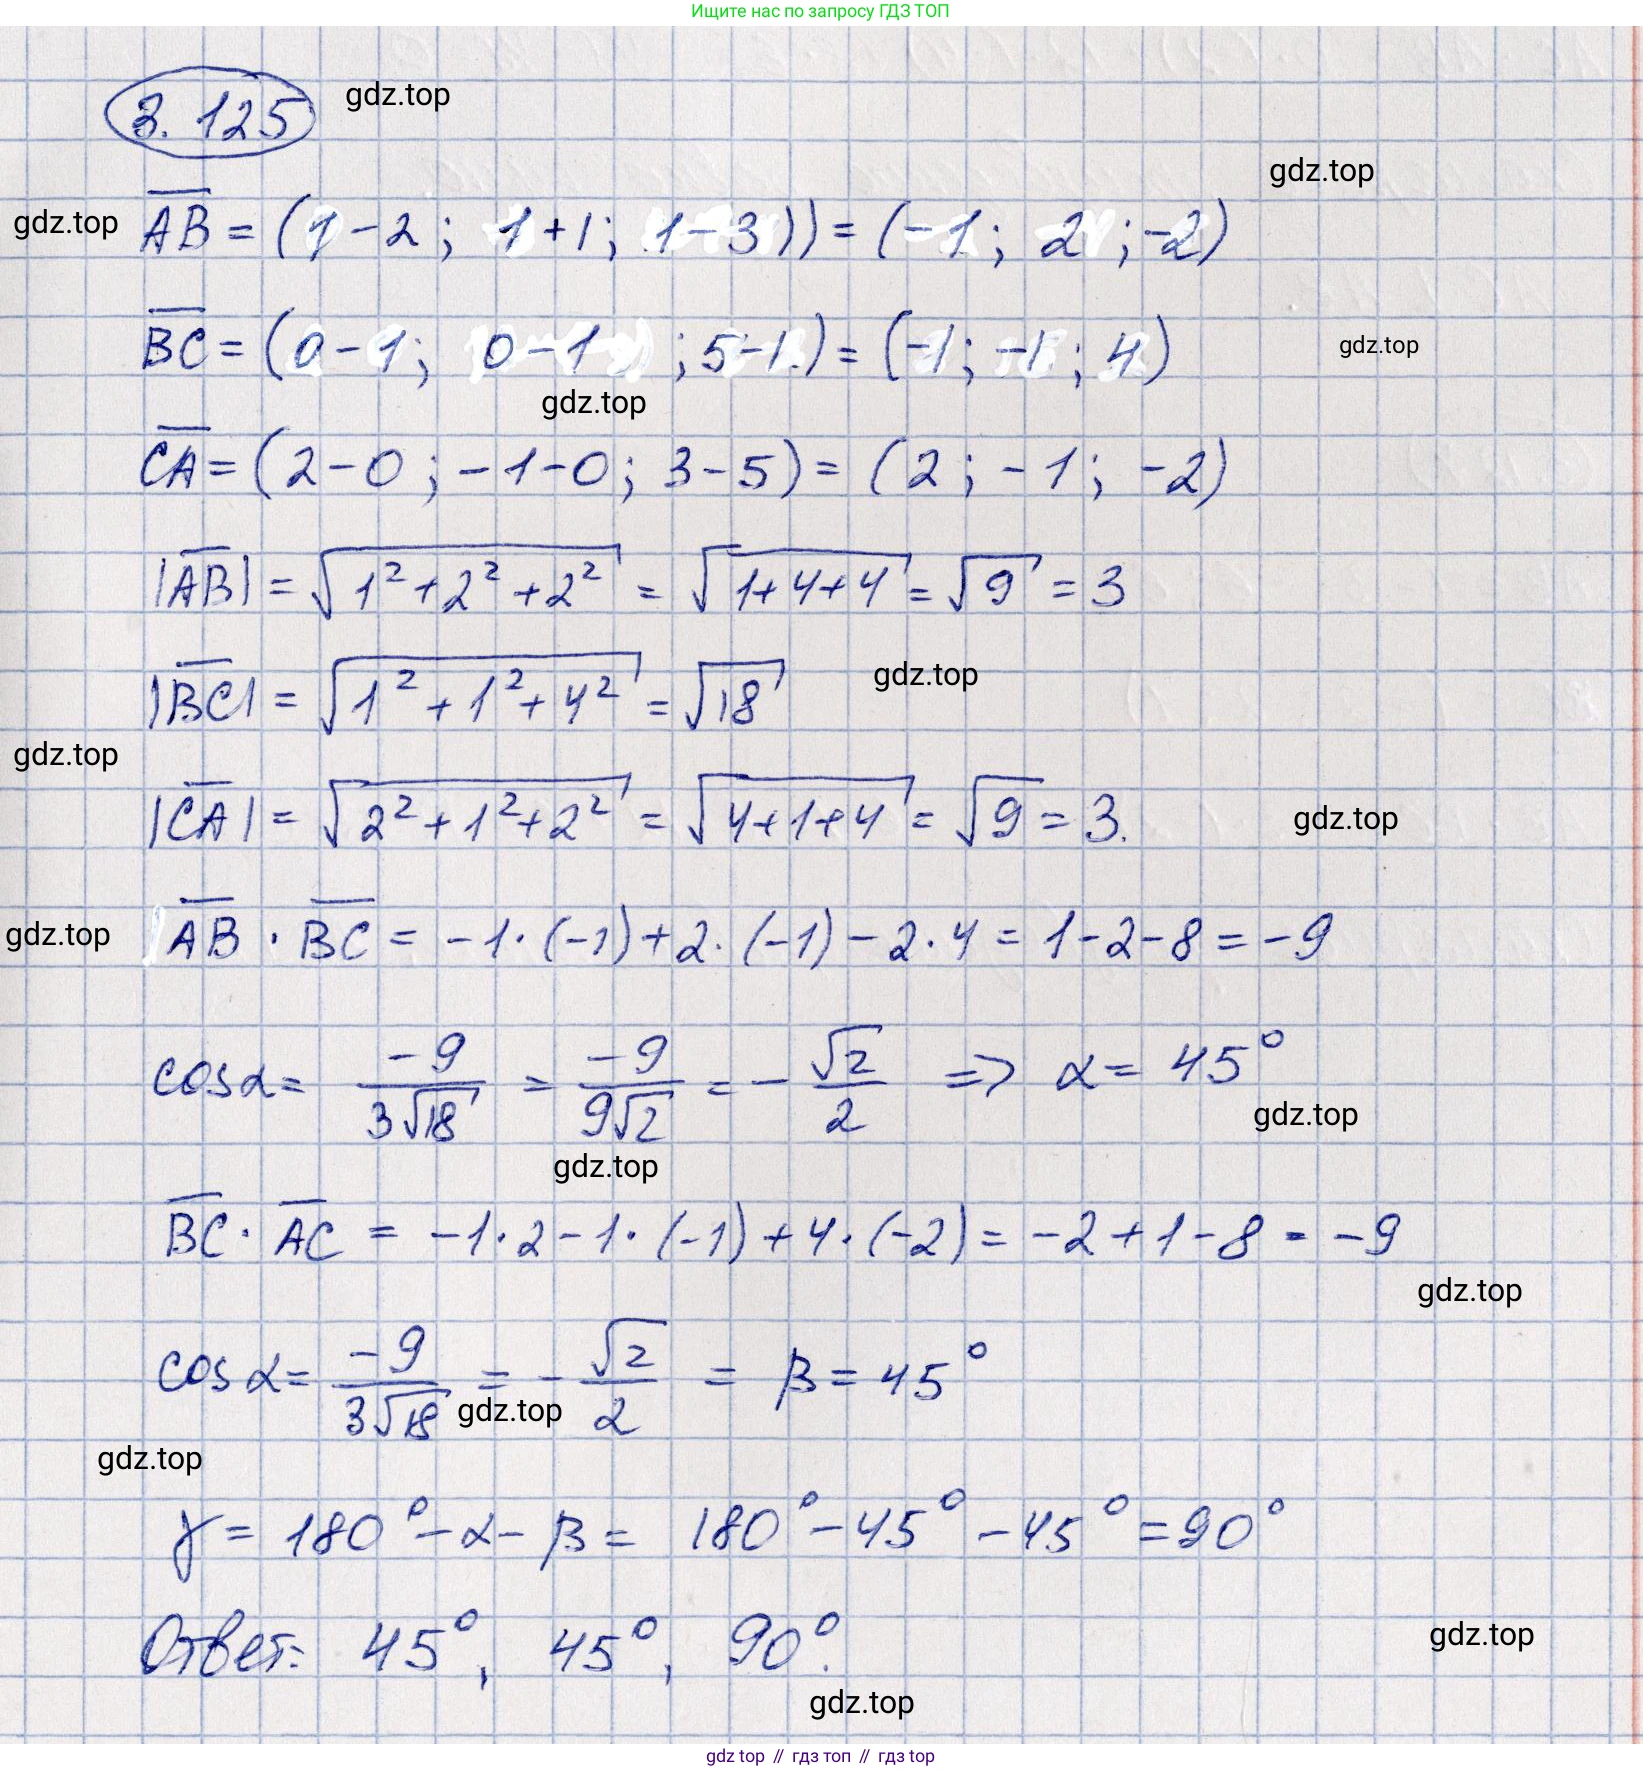 Ищите нас по запросу ГДЗ ТОП
3.125 gdz.top
gdz.top
gdz.top
AB = (1 - 2 ; 1 + 1 ; 1 - 3)) = (-1 ; 2 ; -2)
BC = (0 - 1 ; 0 - 1 ; 5 - 1) = (-1 ; -1 ; 4)
gdz.top
gdz.top
CA = (2 - 0 ; -1 - 0 ; 3 - 5) = (2 ; -1 ; -2)
|AB| = √(1² + 2² + 2²) = √(1 + 4 + 4) = √9 = 3
|BC| = √(1² + 1² + 4²) = √18
gdz.top
gdz.top
|CA| = √(2² + 1² + 2²) = √(4 + 1 + 4) = √9 = 3.
gdz.top
gdz.top
AB · BC = -1 · (-1) + 2 · (-1) - 2 · 4 = 1 - 2 - 8 = -9
cos α = -9/(3√18) = -9/(9√2) = -√2/2 => α = 45°
gdz.top
gdz.top
BC · AC = -1 · 2 - 1 · (-1) + 4 · (-2) = -2 + 1 - 8 = -9
gdz.top
cos α = -9/(3√18) = -√2/2 = β = 45°
gdz.top
gdz.top
γ = 180° - α - β = 180° - 45° - 45° = 90°
Ответ: 45°, 45°, 90°.
gdz.top
gdz.top
gdz top // гдз топ // гдз top